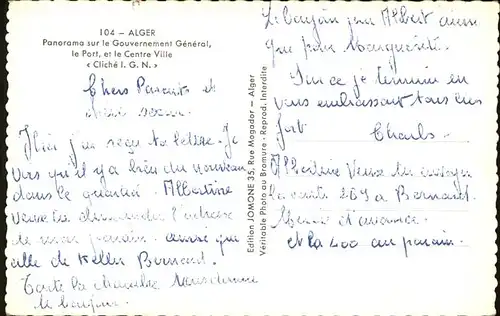 104 – ALGER
Panorama sur le Gouvernement Général,
le Port, et le Centre Ville
« Cliché I. G. N. »
Chers Parents et
Hier j'ai reçu ta lettre. Je
vois qu'il y a bien du nouveau
dans le quartier. Albertine
veux tu demander l'adresse
de mon parrain. ainsi que
celle de Bernard.
Toute la chambrée vous donne
le bonjour.
Edition JOMONE 35, Rue Mogador — Alger
Véritable Photo au Bromure - Reprod. Interdite
Le bonjour pour Albert ainsi
que pour Marguerite.
Sur ce je termine en
vous embrassant tous bien
fort
Charles
Albertine Veux tu envoyer
la carte 104 a Bernard.
Merci d'avance.
et la 200 au parrain.